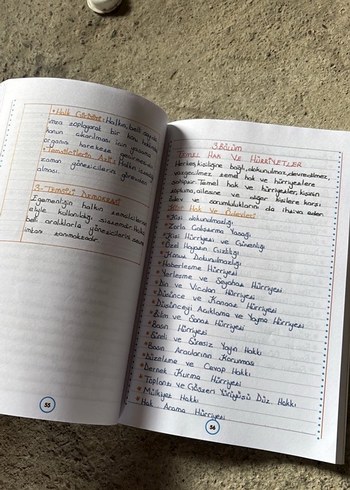 • Halk Girişimi: Halkın belli sayıda
imza toplayarak bir konu hakkında
kanun çıkarılması için yasama
organını harekete geçirmesi
• Temsilcilerin Azli: Halkın süresi
zaman yöneticilerin görevden
alması.
3- TEMSİLİ DEMOKRASİ
Egemenliğin halkın temsilcileri
eliyle kullanıldığı sistemdir. Halkın
belli aralıklarla yöneticilerin seçme
imkanı tanımaktadır
55
3. BÖLÜM
TEMEL HAK VE HÜRRİYETLER
Herkes, kişiliğine bağlı, dokunulmaz, devredilmez,
vazgeçilmez temel hak ve hürriyetlere
sahiptir. Temel hak ve hürriyetler, kişinin
topluma, ailesine ve diğer kişilere karşı
ödev ve sorumluluklarını da ihtiva eder.
Hak Ve Ödevleri
• Kişi dokunulmazlığı
• Zorla Çalıştırma Yasağı
• Kişi Hürriyeti ve Güvenliği
• Özel Hayatın Gizliliği
• Konut Dokunulmazlığı
• Haberleşme Hürriyeti
• Yerleşme ve Seyahat Hürriyeti
• Din ve Vicdan Hürriyeti
• Düşünce ve Kanaat Hürriyeti
• Düşünceyi Açıklama ve Yayma Hürriyeti
• Bilim ve Sanat Hürriyeti
• Basın Hürriyeti
• Süreli ve Süresiz Yayın Hakkı
• Basın Araçlarının Korunması
• Düzeltme ve Cevap Hakkı
• Dernek Kurma Hürriyeti
• Toplantı ve Gösteri Yürüyüşü Düz. Hakkı
• Mülkiyet Hakkı
• Hak Arama Hürriyeti
56